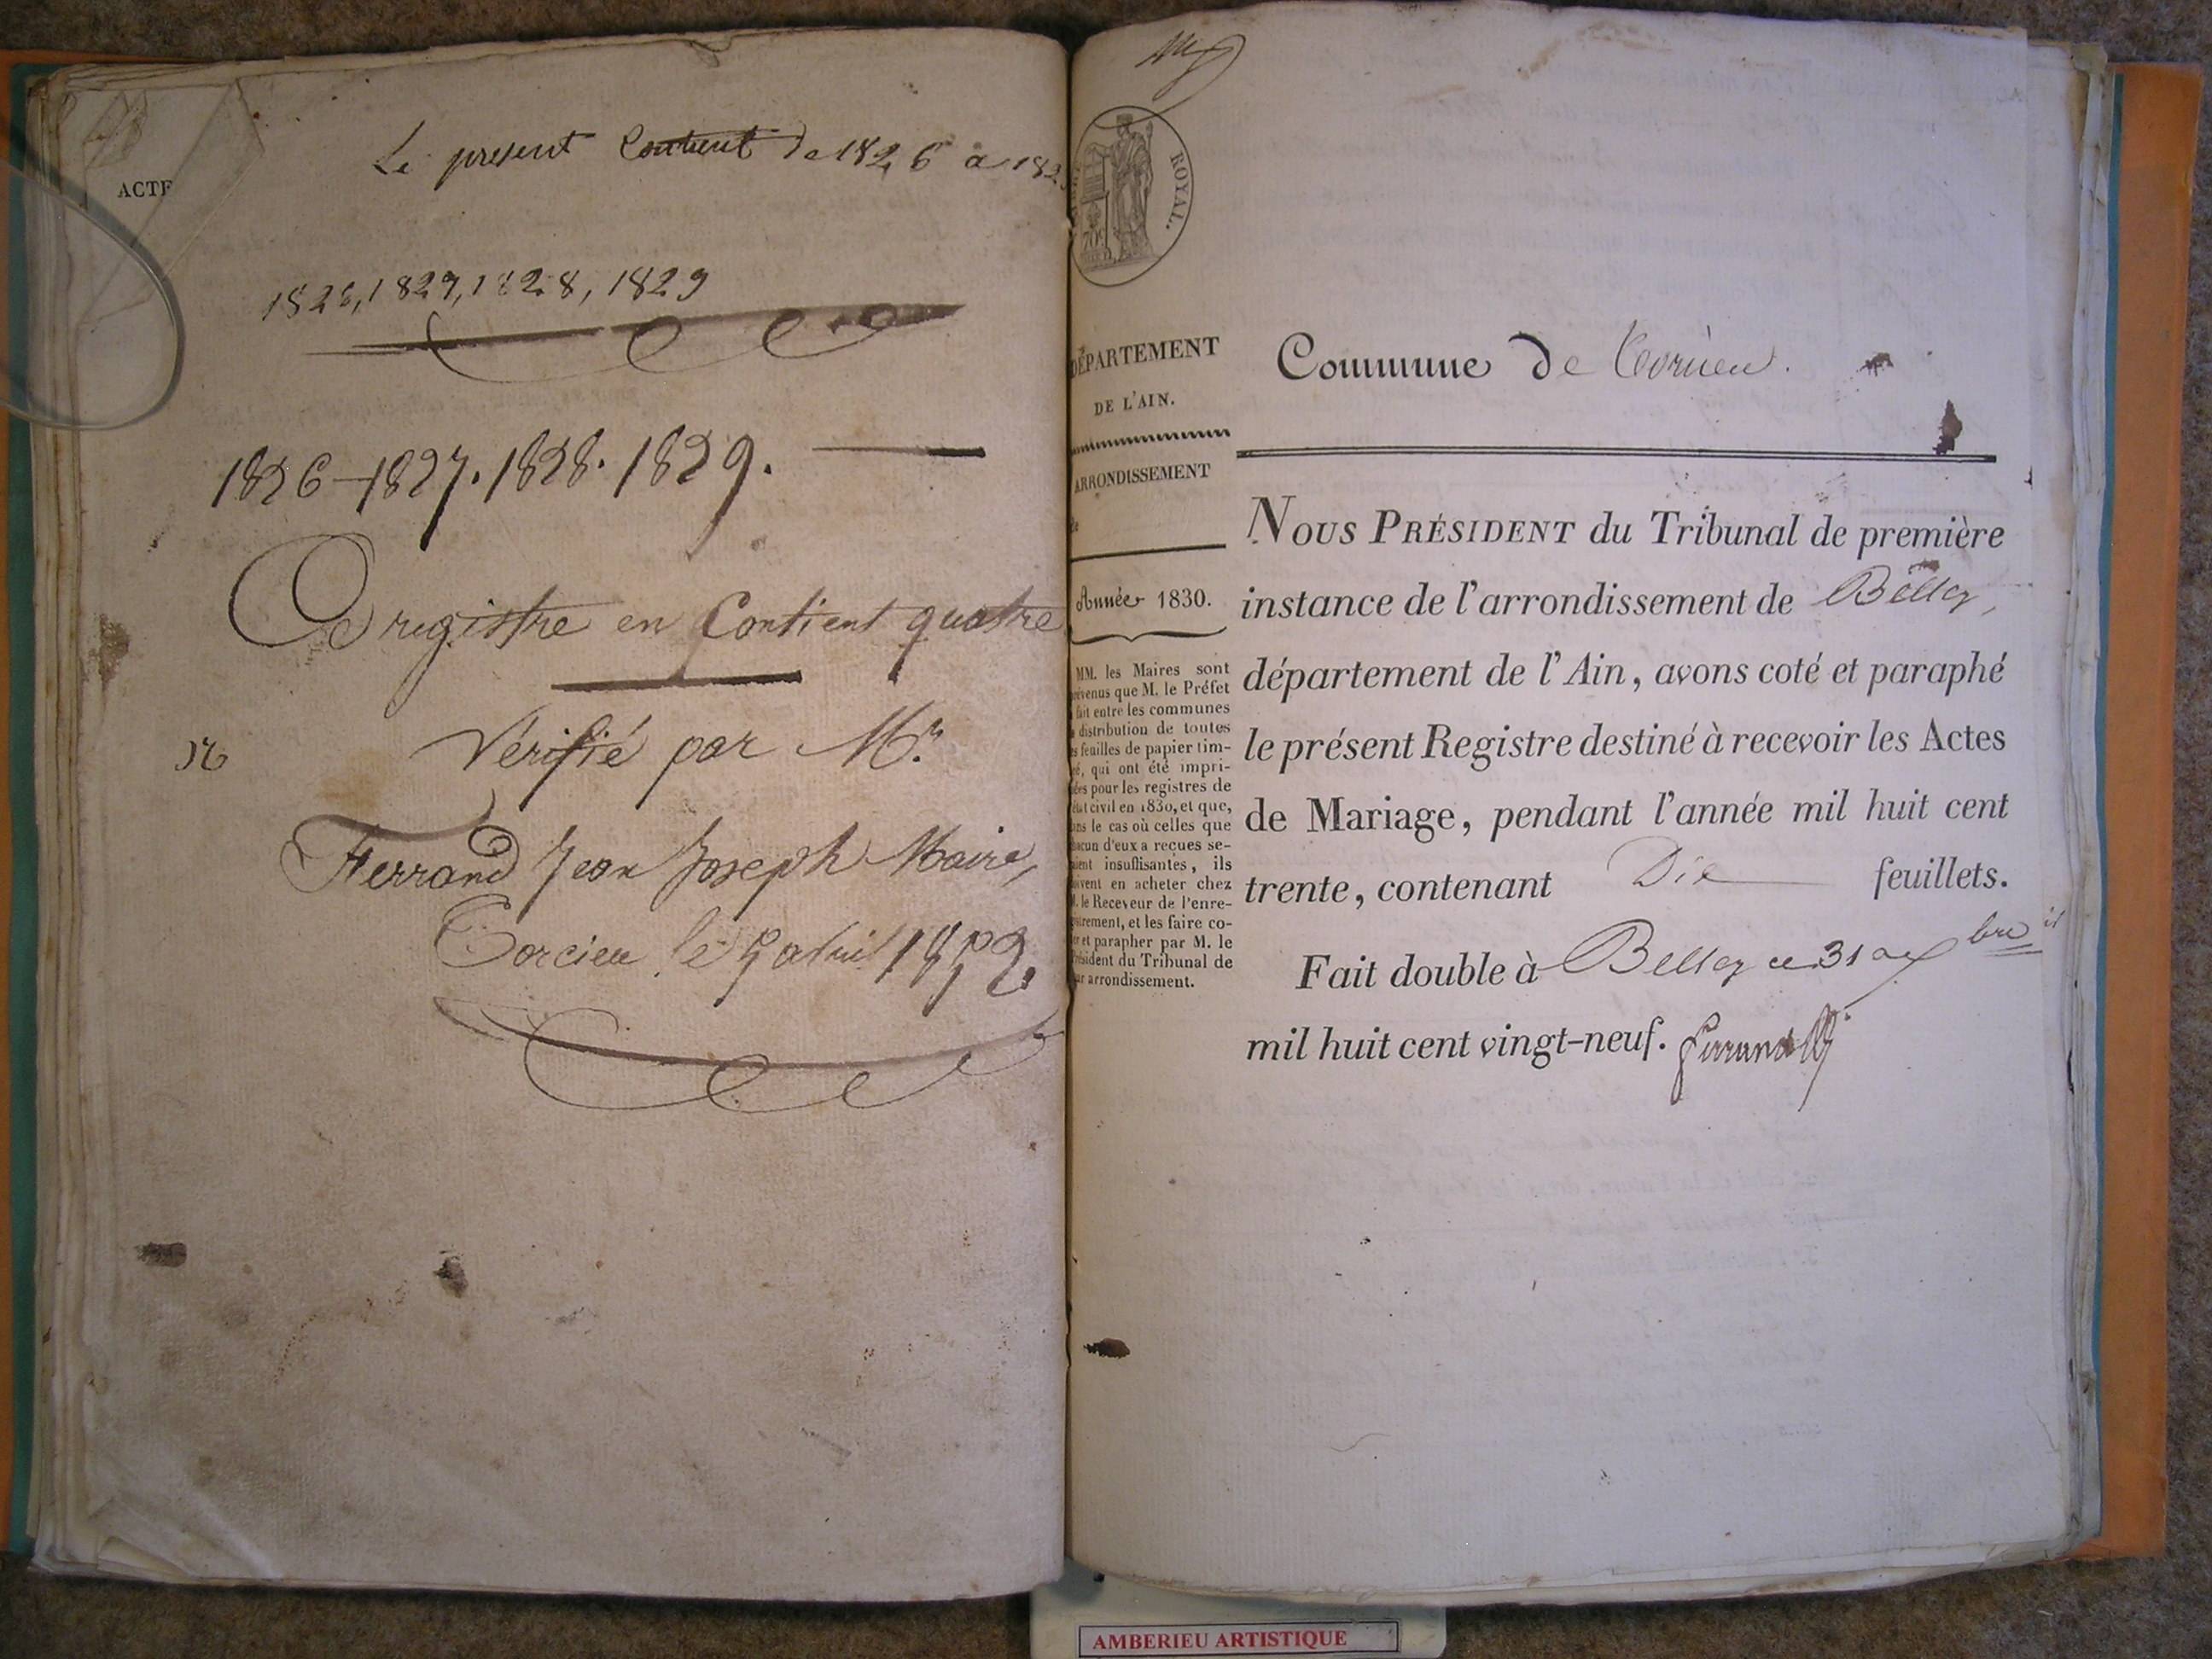 ACTE
Le present Contient De 1826 a 182
1826, 1827, 1828, 1829
1826-1827. 1828. 1829.
Ce registre en Contient quatre
Vérifié par Mr.
Ferrand Jean Joseph Maire,
Torcieu le 5 avril 1852.
ROYAL.
DÉPARTEMENT
DE L'AIN.
ARRONDISSEMENT
de
Année 1830.
MM. les Maires sont
prévenus que M. le Préfet
a fait entre les communes
la distribution de toutes
les feuilles de papier tim-
bré, qui ont été impri-
mées pour les registres de
l'état civil en 1830, et que,
dans le cas où celles que
chacun d'eux a reçues se-
raient insuffisantes, ils
doivent en acheter chez
M. le Receveur de l'enre-
gistrement, et les faire co-
ter et parapher par M. le
Président du Tribunal de
leur arrondissement.
Commune de Torcieu.
NOUS PRÉSIDENT du Tribunal de première
instance de l'arrondissement de Belley,
département de l'Ain, avons coté et paraphé
le présent Registre destiné à recevoir les Actes
de Mariage, pendant l'année mil huit cent
trente, contenant Dix feuillets.
Fait double à Belley ce 31 Xbre
mil huit cent vingt-neuf.
AMBERIEU ARTISTIQUE